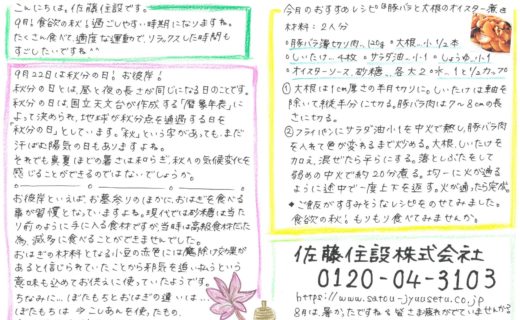 こんにちは。佐藤住設です。
9月！食欲の秋！過ごしやすい時期になりますね。
たくさん食べて、適度な運動で、リラックスした時間も
すごしたいですね^^
9月22日は秋分の日！お彼岸！
秋分の日とは、昼と夜の長さが同じになる日のことです。
秋分の日は、国立天文台が作成する「暦象年表」に
よって決められ、地球が秋分点を通過する日を
「秋分の日」としています。「秋」という字があっても、まだ
汗ばむお陽気の日もありますよね。
それでも真夏ほどの暑さは和らぎ、秋への気候変化を
感じることができるのではないでしょうか。
お彼岸といえば、お墓参りのほかに、おはぎを食べる
事が習慣となっていますよね。現代では砂糖は当た
り前のように手に入る食材ですが、当時は高級食材だった
為、滅多に食べることができませんでした。
おはぎの材料となる小豆の赤色には魔除け効果が
あると信じられていたことから邪気を追い払うという
意味も込めてお供えに使っていたようです。
ちなみに…ぼたもちとおはぎの違いは…
ぼたもちは→こしあんを使ったもの、
今月のおすすめレシピ★豚バラと大根のオイスター煮★
材料：2人分
○豚バラ薄切り肉…120g ○大根…小1/2本
○しいたけ…4枚 ○サラダ油…小1 ○しょうゆ…小1
○オイスターソース、砂糖…各大2 ○水…1と1/2カップ
① 大根は1cm厚さの半月切りに。しいたけは軸を
除いて縦半分に切る。豚バラ肉は7〜8cmの長
さに切る。
② フライパンにサラダ油小1を中火で熱し、豚バラ肉
を入れて色が変わるまで炒める。大根、しいたけを
加え、混ぜたら平らにする。落としぶたをして
弱めの中火で約20分煮る。均一に火が通る
ように途中で一度上下を返す。火が通ったら完成。
★ご飯がすすみそうなレシピをのせてみました。
食欲の秋！もりもり食べてみませんか。
佐藤住設株式会社
0120-04-3103
https://www.satou-jyuusetu.co.jp
8月は、暑かったですね。皆さま疲れがでていませんか